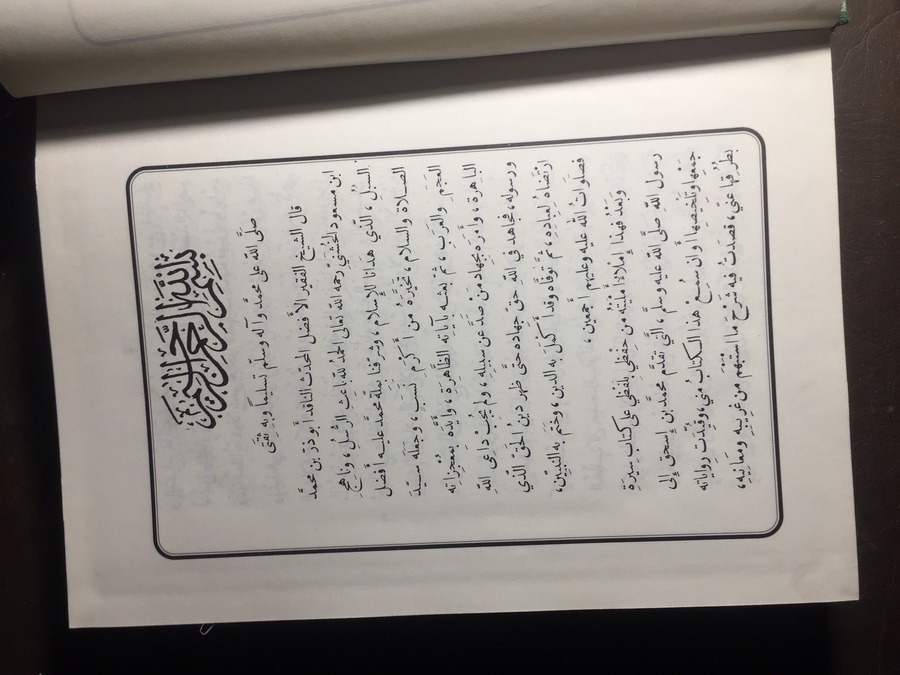 بِسْمِ اللَّهِ الرَّحْمَٰنِ الرَّحِيمِ
صَلَّى الله على محمَّد وآله وسلَّم تسليماً وبهِ ثقتي
قال الشيخ الفقير الأفضل المحدّث الناقد أبو ذرّ بن محمَّد
ابن مسعود الخشنيّ رحمه الله تعالى الحمدُ لله باعِثِ الرُّسُل، وناهجِ
السُّبُلِ، الَّذي هَدَانا للإسلام، وشرَّفنا بملَّة محمَّد عليـه أفضل
الصلاة والسلام، تَخَيَّرَهُ من أَكرَم نَسَبٍ، وجعَلَه سيّدَ
العَجَمِ والعَرَبِ، ثمّ بعثـه بآياتهِ الظَّاهرَة، وأيَّدَه بمعجِزاته
الباهرة، وأمرَهُ بجهاد مَنْ صَدَّ عن سبيلهِ، ولم يُجِبْ داعي الله
ورسوله، فجاهدَ في اللهِ حقّ جهاده حتَّى ظهر دينُ الحَقّ الَّذي
ارتَضاهُ لعبادِه، ثمَّ توفّاه وقد أَكملَ به الدين، وختَم به النبيّين،
فصلَوَاتُ الله عليه وعليهم أجمعين،
وبَعْدُ فهذا إملاءٌ أمليتهُ من حِفظي بلفظي على كتاب سِيرَةِ
رسول الله صلَّى الله عليه وسلَّم، الَّتي تقدَّم محمدُ بن إسحق إلى
جمْعِها وتلخيصها أوان سُمِعَ هذا الكتابُ مني، وقُيِّدَتْ رواياته
بطُرُقِها عَنِّي، قصَدتُ فيه شَرْحَ ما اسْتَبْهَم من غريبِهِ ومعانيه،